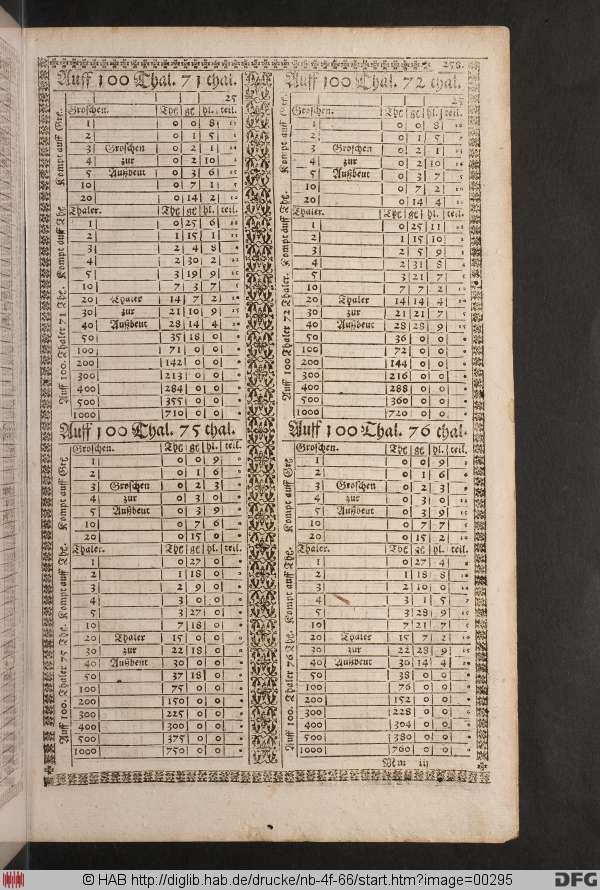 258.
Auff 100 Thal. 71 thal.
25
Groschen. Thl gl hl. teil.
1 0 0 8
2 0 1 5
3 Groschen 0 2 1
4 zur 0 2 10
5 Außbeut 0 3 6
10 0 7 1
20 0 14 2
Thaler. Thl gl hl. teil.
1 0 25 6
2 1 15 1
3 2 4 8
4 2 30 2
5 3 19 9
10 7 3 7
20 Thaler 14 7 2
30 zur 21 10 9
40 Außbeut 28 14 4
50 35 18 0
100 71 0 0
200 142 0 0
300 213 0 0
400 284 0 0
500 355 0 0
1000 710 0 0
Auff 100. Thaler 71 Thl. Kompt auff Thl. Kompt auff Gr.
Auff 100 Thal. 72 thal.
25
Groschen. Thl gl hl. teil.
1 0 0 8
2 0 1 5
3 Groschen 0 2 1
4 zur 0 2 10
5 Außbeut 0 3 7
10 0 7 2
20 0 14 4
Thaler. Thl gl hl. teil.
1 0 25 11
2 1 15 10
3 2 5 9
4 2 31 8
5 3 21 7
10 7 7 2
20 Thaler 14 14 4
30 zur 21 21 7
40 Außbeut 28 28 9
50 36 0 0
100 72 0 0
200 144 0 0
300 216 0 0
400 288 0 0
500 360 0 0
1000 720 0 0
Auff 100 Thaler 72 Thaler. Kompt auff Thl. Kompt auff Gr.
Auff 100 Thal. 75 thal.
Groschen. Thl gl hl. teil.
1 0 0 9
2 0 1 6
3 Groschen 0 2 3
4 zur 0 3 0
5 Außbeut 0 3 9
10 0 7 6
20 0 15 0
Thaler. Thl gl hl. teil.
1 0 27 0
2 1 18 0
3 2 9 0
4 3 0 0
5 3 27 0
10 7 18 0
20 Thaler 15 0 0
30 zur 22 18 0
40 Außbeut 30 0 0
50 37 18 0
100 75 0 0
200 150 0 0
300 225 0 0
400 300 0 0
500 375 0 0
1000 750 0 0
Auff 100. Thaler 75 Thl. Kompt auff Thl. Kompt auff Gr.
Auff 100 Thal. 76 thal.
Groschen. Thl gl hl. teil.
1 0 0 9
2 0 1 6
3 Groschen 0 2 3
4 zur 0 3 0
5 Außbeut 0 3 9
10 0 7 7
20 0 15 2
Thaler. Thl gl hl. teil.
1 0 27 4
2 1 18 8
3 2 10 0
4 3 1 5
5 3 28 9
10 7 21 7
20 Thaler 15 7 2
30 zur 22 28 9
40 Außbeut 30 14 4
50 38 0 0
100 76 0 0
200 152 0 0
300 228 0 0
400 304 0 0
500 380 0 0
1000 760 0 0
Auff 100. Thaler 76 Thl. Kompt auff Thl. Kompt auff Gr.
Mm iij
© HAB http://diglib.hab.de/drucke/nb-4f-66/start.htm?image=00295
DFG